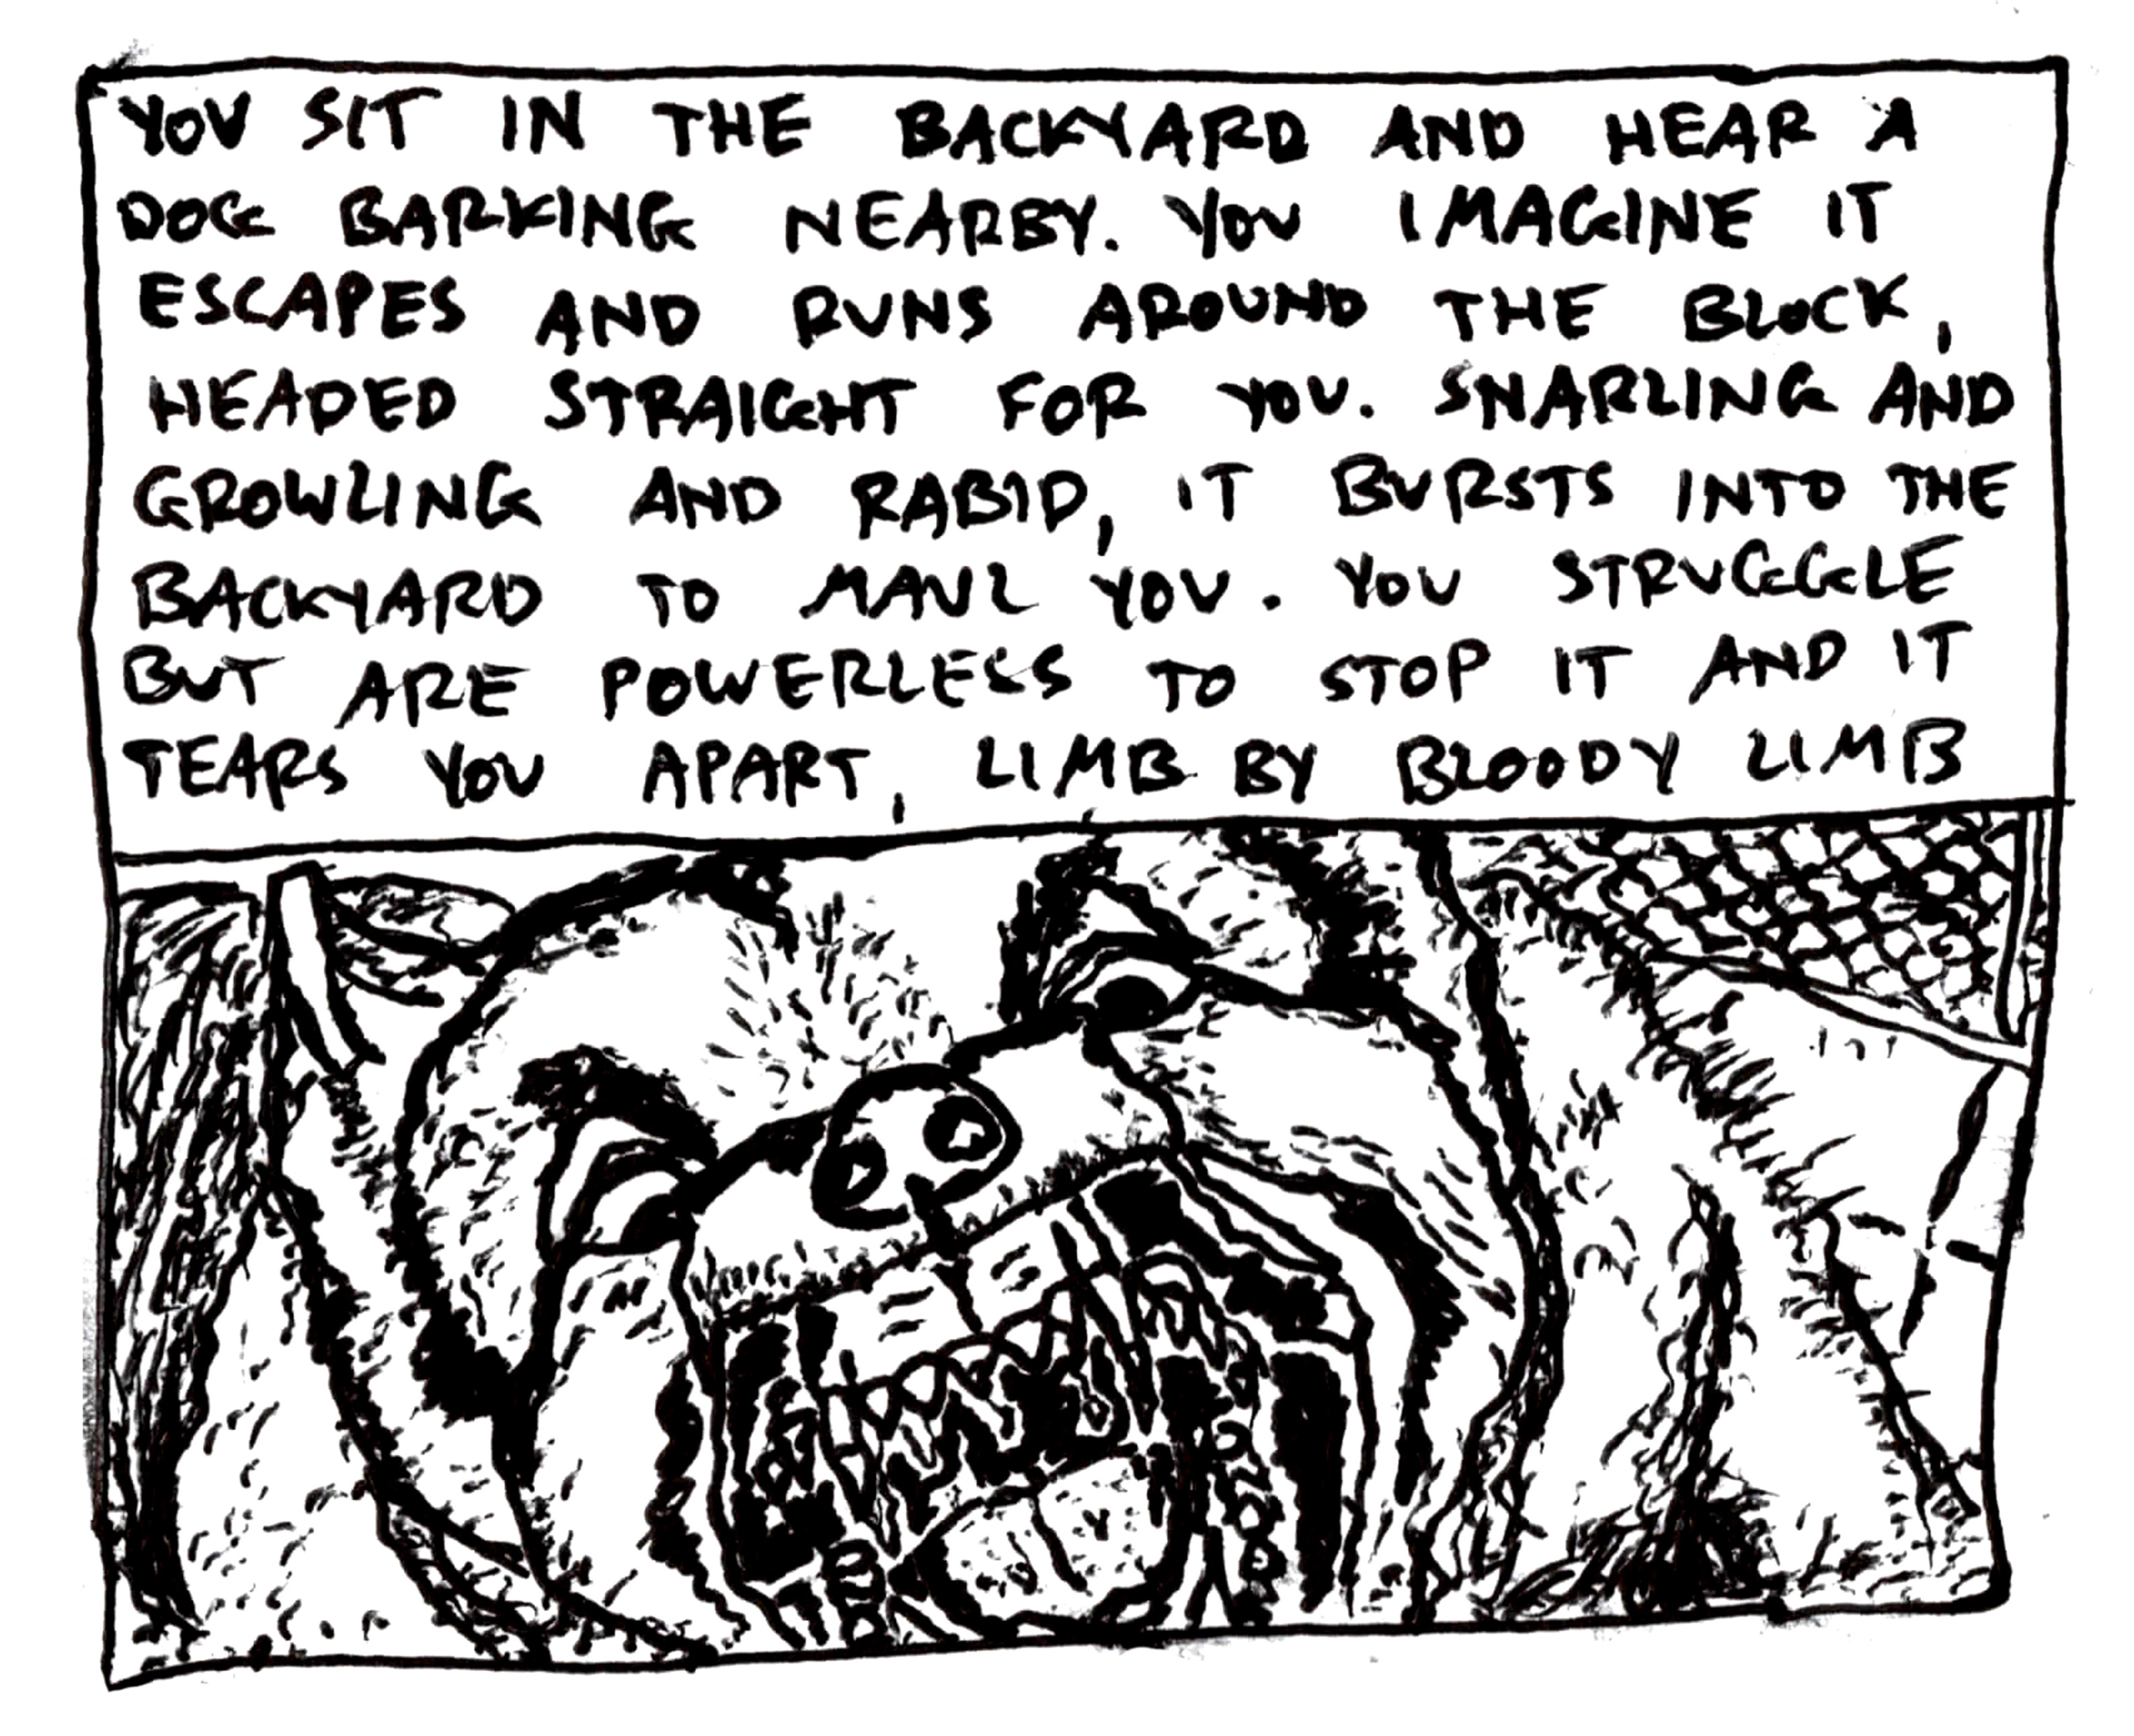 YOU SIT IN THE BACKYARD AND HEAR A
DOG BARKING NEARBY. YOU IMAGINE IT
ESCAPES AND RUNS AROUND THE BLOCK,
HEADED STRAIGHT FOR YOU. SNARLING AND
GROWLING AND RABID, IT BURSTS INTO THE
BACKYARD TO MAUL YOU. YOU STRUGGLE
BUT ARE POWERLESS TO STOP IT AND IT
TEARS YOU APART, LIMB BY BLOODY LIMB